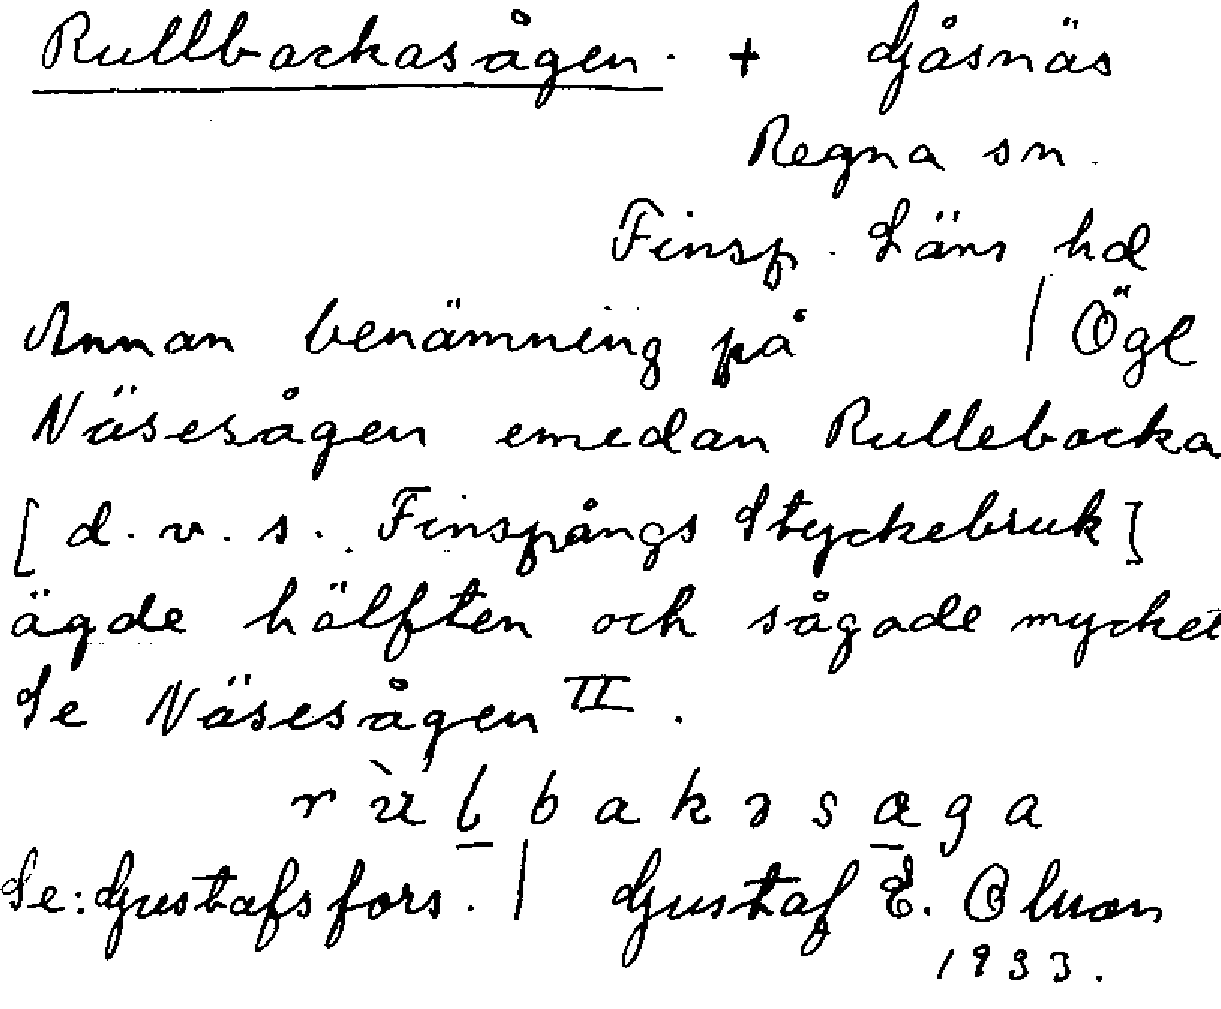 Rullbackasågen. + Gåsnäs
Regna sn.
Finsp. Läns hd
Annan benämning på | Ögl
Näsesågen emedan Rullebacka
[d.v.s. Finspångs Styckebruk]
ägde hälften och sågade mycket
Se Näsesågen II.
rùl̲bakəsa̲ga
Se: Gustafsfors. | Gustaf E. Olson
1933.